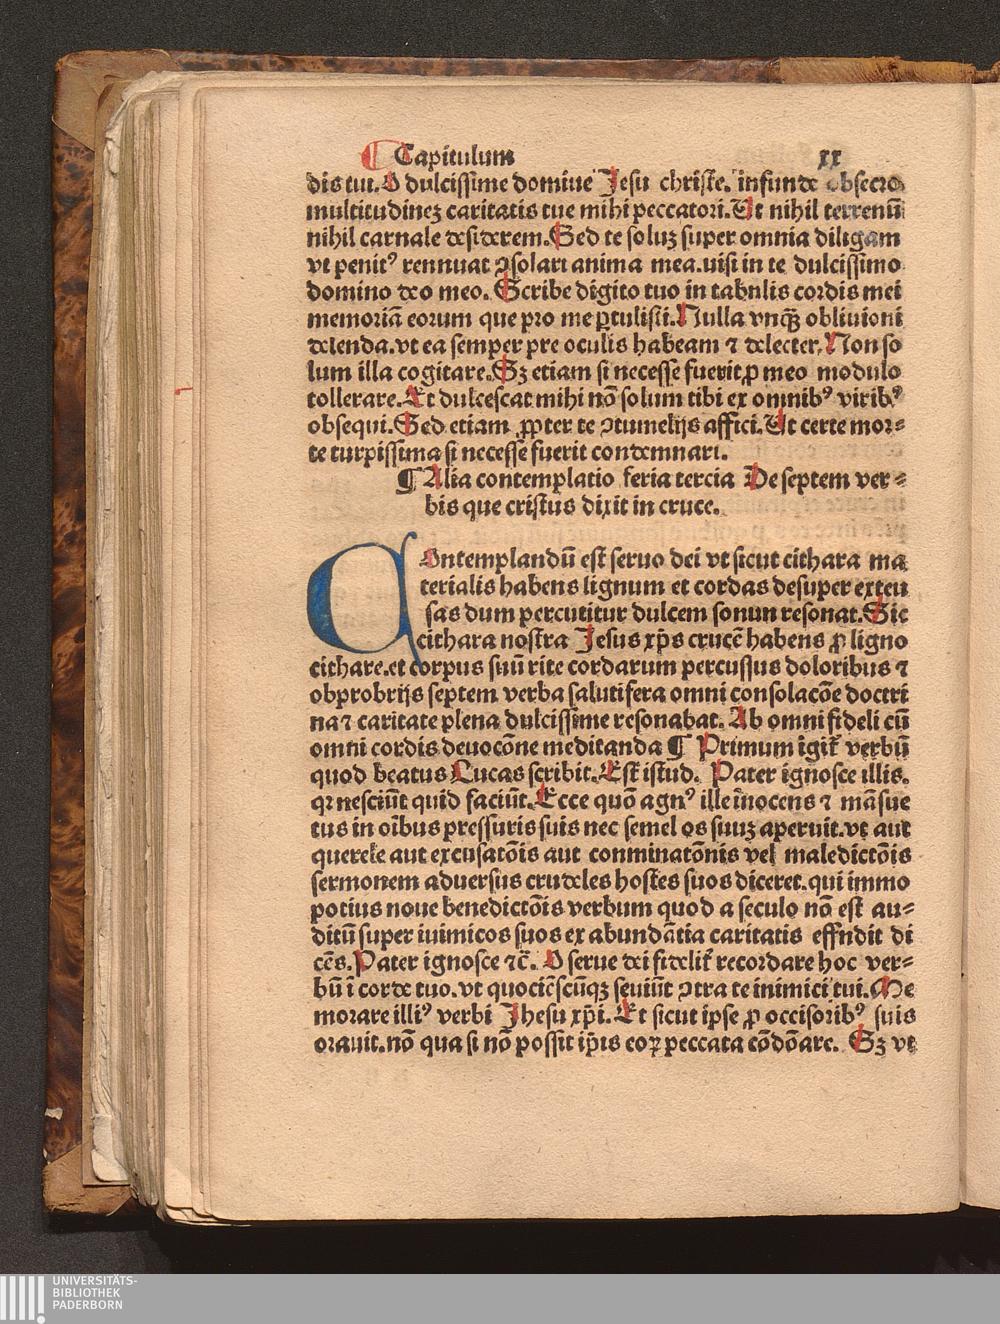 ¶ Capitulum xx
dis tui. O dulcissime domiue Jesu christe. infunde obsecro
multitudinez caritatis tue mihi peccatori. Ut nihil terrenū
nihil carnale desiderem. Sed te soluz super omnia diligam
vt penitꝰ rennuat ꝯsolari anima mea. uisi in te dulcissimo
domino deo meo. Scribe digito tuo in tabnlis cordis mei
memoriā eorum que pro me ꝑtulisti. Nulla vnqꝫ̄ obliuioni
delenda. vt ea semper pre oculis habeam ⁊ delecter. Non so
lum illa cogitare. Sꝫ etiam si necesse fuerit ꝓ meo modulo
tollerare. Et dulcescat mihi nō solum tibi ex omnibꝰ viribꝰ
obsequi. Sed etiam ꝓpter te ꝯtumelijs affici. Ut certe mor⸗
te turpissima si necesse fuerit condemnari.
¶ Alia contemplatio feria tercia De septem ver⸗
bis que cristus dixit in cruce.
COntemplandū est seruo dei vt sicut cithara ma
terialis habens lignum et cordas desuper exteu
sas dum percutitur dulcem sonun resonat. Sic
cithara nostra Jesus xp̄s crucē habens ꝓ ligno
cithare. et corpus suū rite cordarum percussus doloribus ⁊
obprobrijs septem verba salutifera omni consolacōe doctri
na ⁊ caritate plena dulcissime resonabat. Ab omni fideli cū
omni cordis deuocōne meditanda ¶ Primum igit̄ verbū
quod beatus Lucas scribit. Est istud. Pater ignosce illis.
qꝛ nesciūt quid faciūt. Ecce quō agnꝰ ille īnocens ⁊ māsue
tus in oībus pressuris suis nec semel os suuz aperuit. vt aut
querele aut excusatōis aut conminatōnis vel maledictōis
sermonem aduersus crudeles hostes suos diceret. qui immo
potius noue benedictōis verbum quod a seculo nō est au⸗
ditū super iuimicos suos ex abundātia caritatis effndit di
cēs. Pater ignosce ⁊c̄. O serue dei fidelit̄ recordare hoc ver⸗
bū ī corde tuo. vt quociēscūqꝫ seuiūt ꝯtra te inimici tui. Me
morare illiꝰ verbi Jhesu xp̄i. Et sicut ipse ꝓ occisoribꝰ suis
orauit. nō qua si nō possit ip̄is eoꝝ peccata cōdōare. Sꝫ vt
UNIVERSITÄTS-
BIBLIOTHEK
PADERBORN